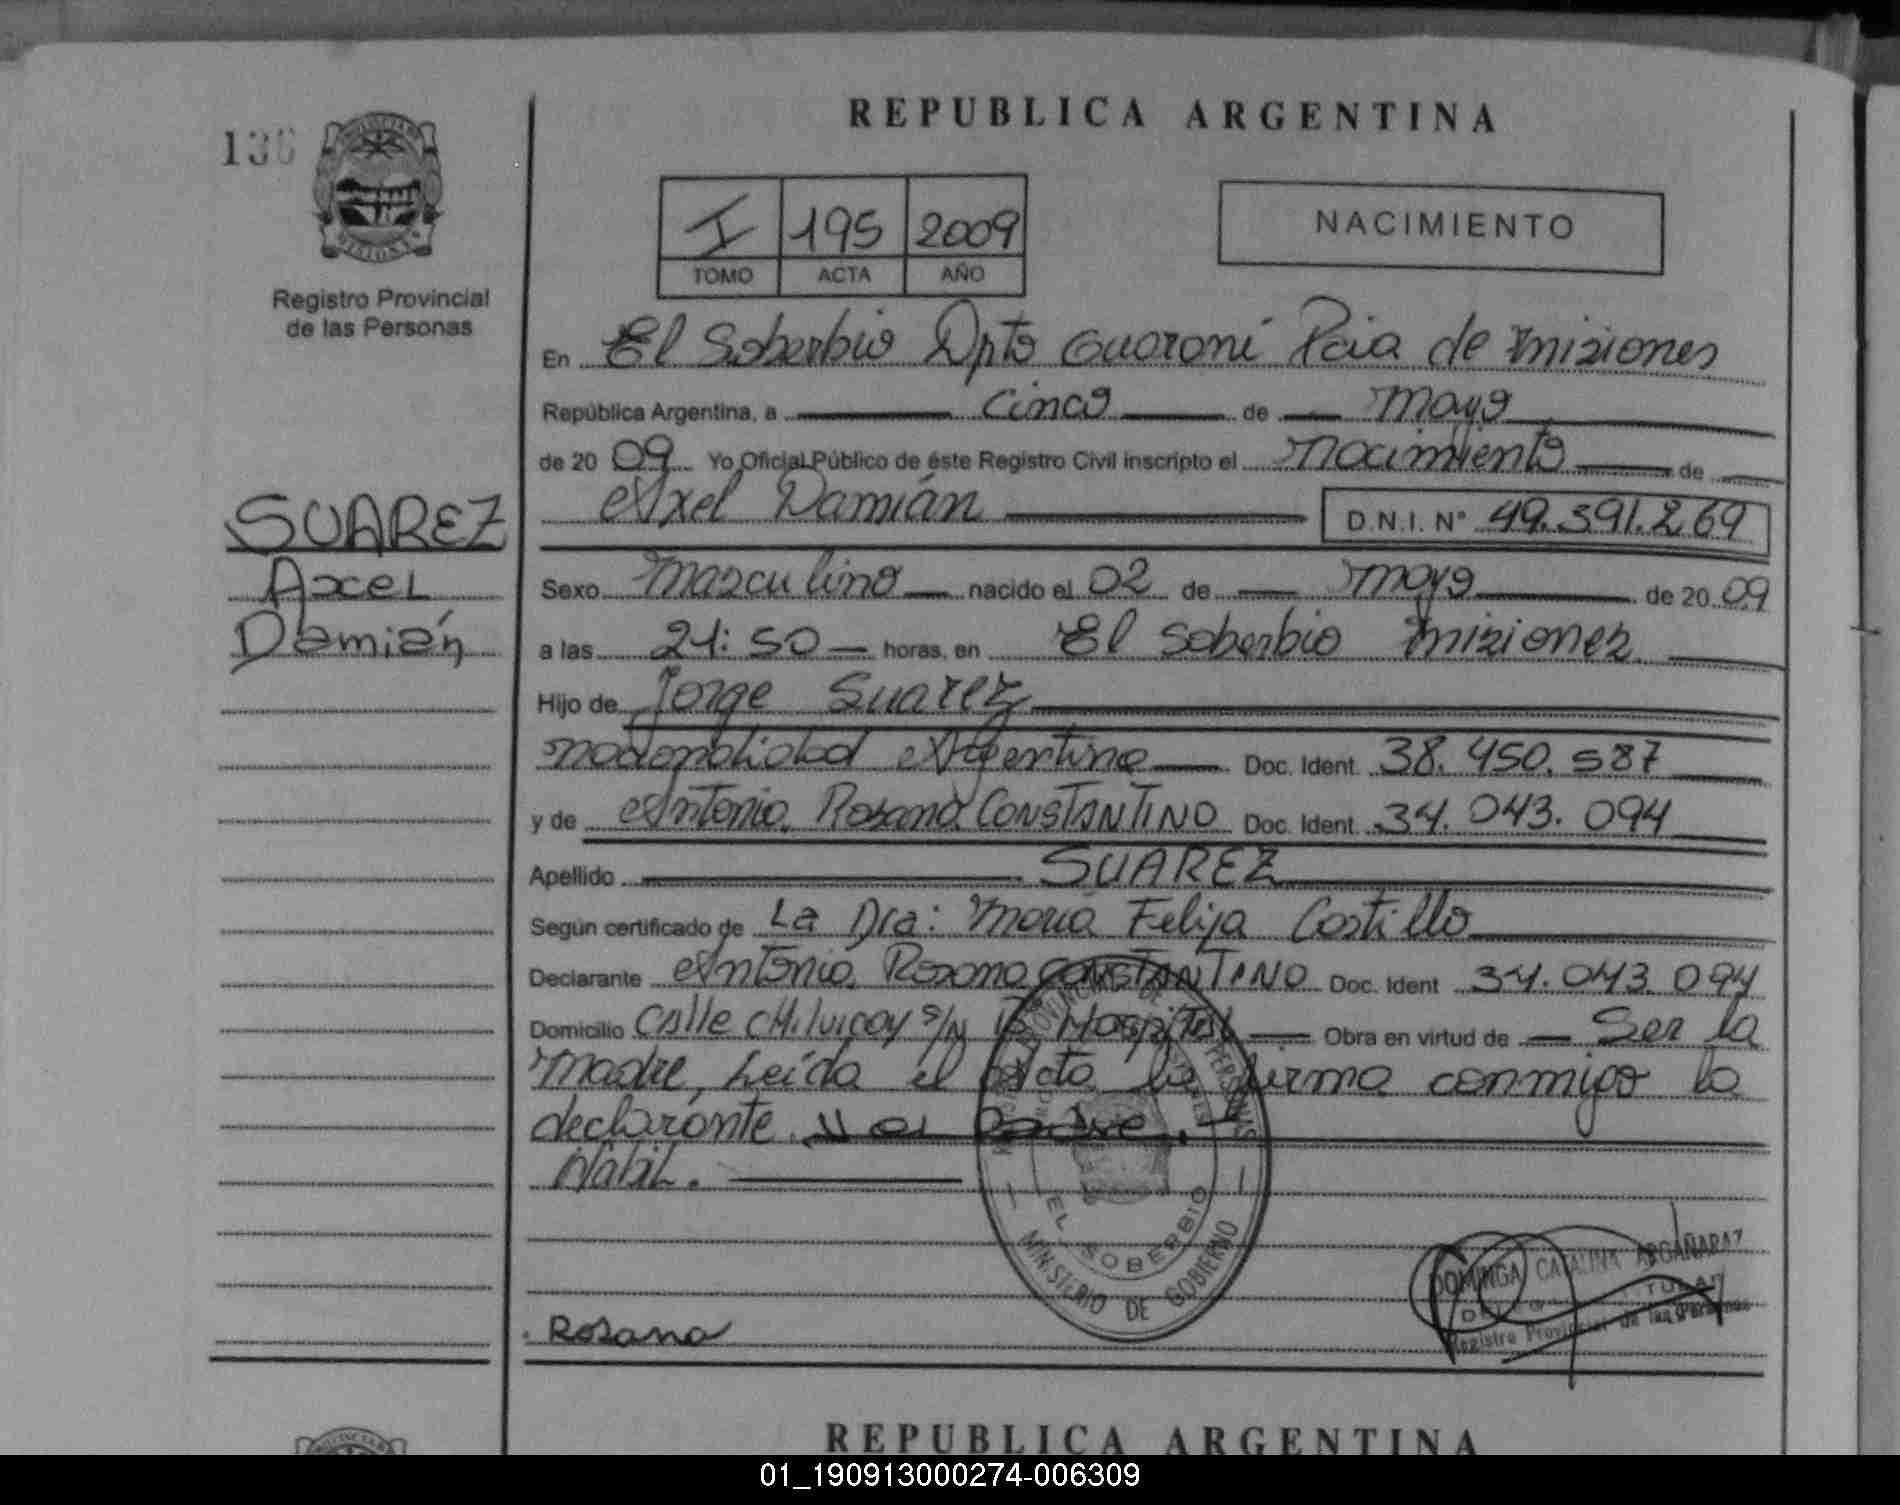 REPUBLICA ARGENTINA
136
PROVINCIA DE
MISIONES
Registro Provincial
de las Personas
I 195 2009
TOMO ACTA AÑO
NACIMIENTO
En El Soberbio Dpto Guaraní Pcia de Misiones
República Argentina, a cinco de Mayo
de 20 09 Yo Oficial Público de éste Registro Civil inscripto el Nacimiento de
Axel Damián D.N.I. Nº 49.391.269
SUAREZ
Axel
Damián
Sexo Masculino nacido el 02 de Mayo de 20 09
a las 21:50 horas, en El Soberbio Misiones
Hijo de Jorge Suarez
nacionalidad Argentina Doc. Ident. 38.450.587
y de Antonia Rosana CONSTANTINO Doc. Ident. 34.043.094
Apellido SUAREZ
Según certificado de La Dra: María Felisa Castillo
Declarante Antonia Rosana CONSTANTINO Doc. Ident 34.043.094
Domicilio Calle s/n Bº Hospital Obra en virtud de Ser la
Madre, Leída el Acta la firma conmigo la
declarante
PROVINCIAL DE LAS PERSONAS
EL SOBERBIO
MINISTERIO DE GOBIERNO
Rosana
DOMINGA CATALINA ARGAÑARAZ
TITULAR
Registro Provincial de las Personas
REPUBLICA ARGENTINA
01_190913000274-006309